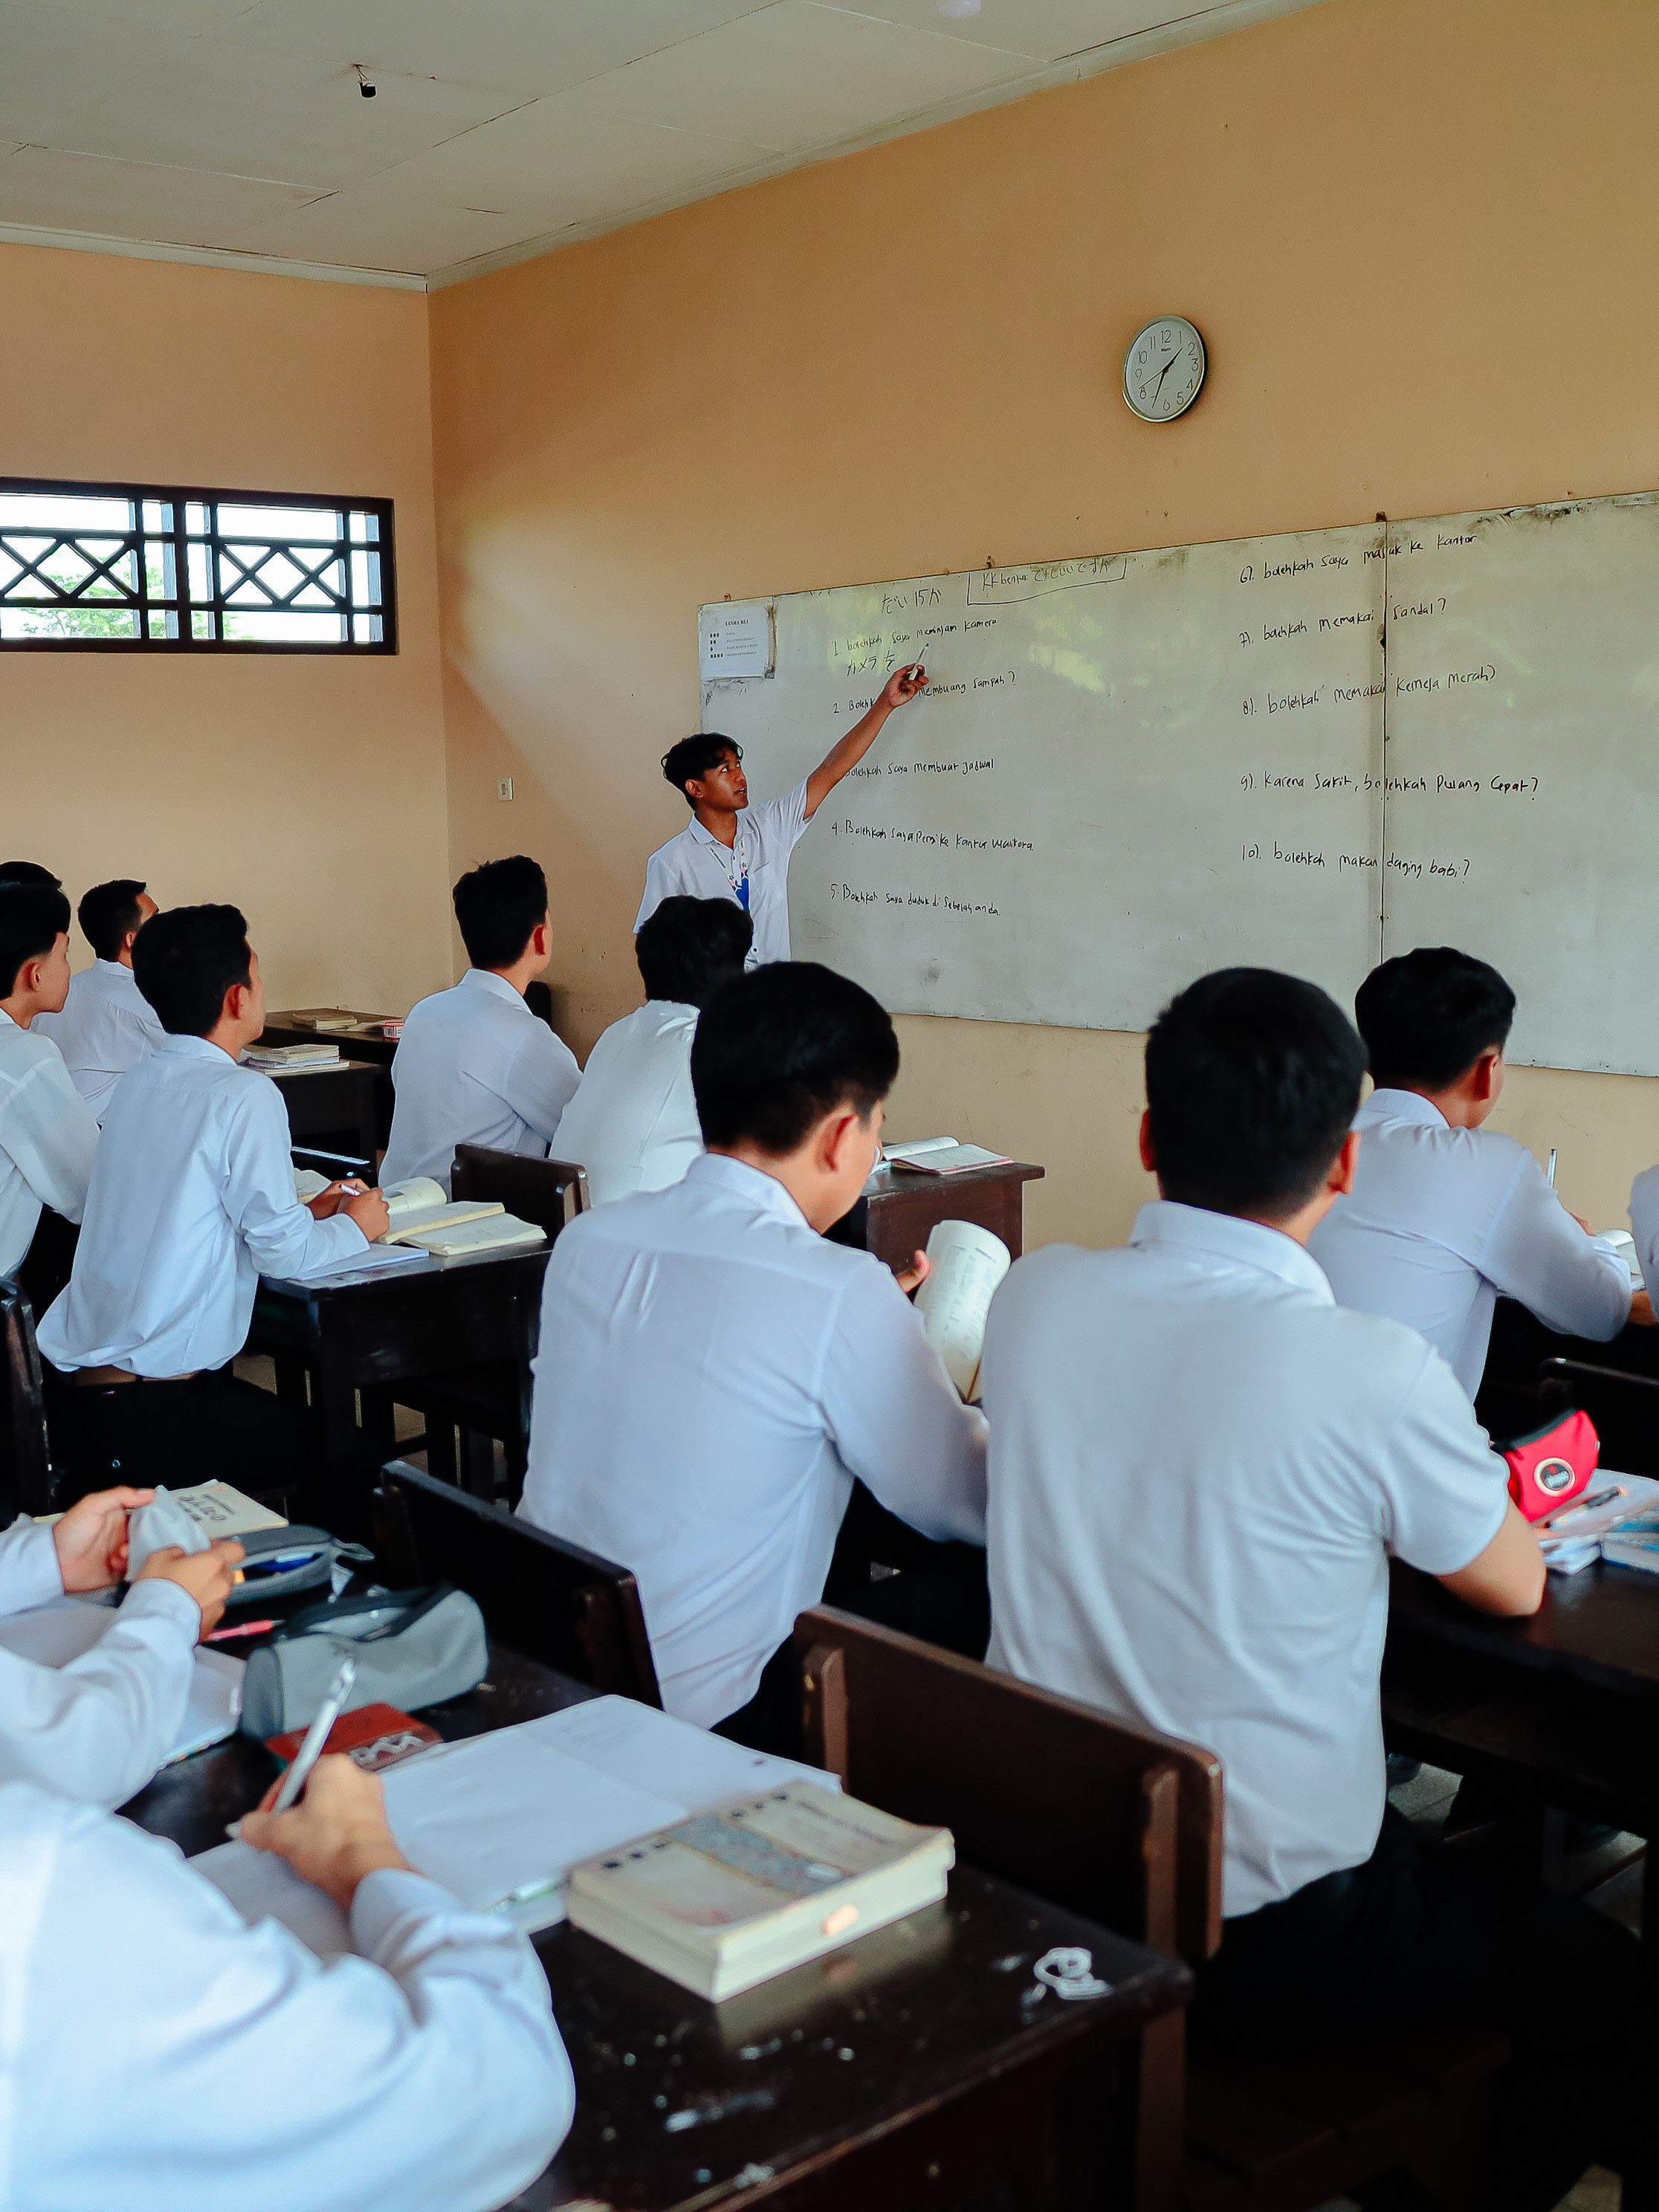 だい15か
KK bentuk て+もいいですか
1. bolehkah saya meminjam kamera
カメラを
2. Bolehk membuang sampah?
bolehkah saya membuat jadwal
4. Bolehkah saya pergi ke kantor
5. Bolehkah saya duduk di sebelah anda
6). bolehkah saya masuk ke kantor
7). bolehkah memakai sandal?
8). bolehkah memakai kemeja merah?
9). Karena sakit, bolehkah pulang cepat?
10). bolehkah makan daging babi?
12
1
2
3
4
5
6
8
9
10
11